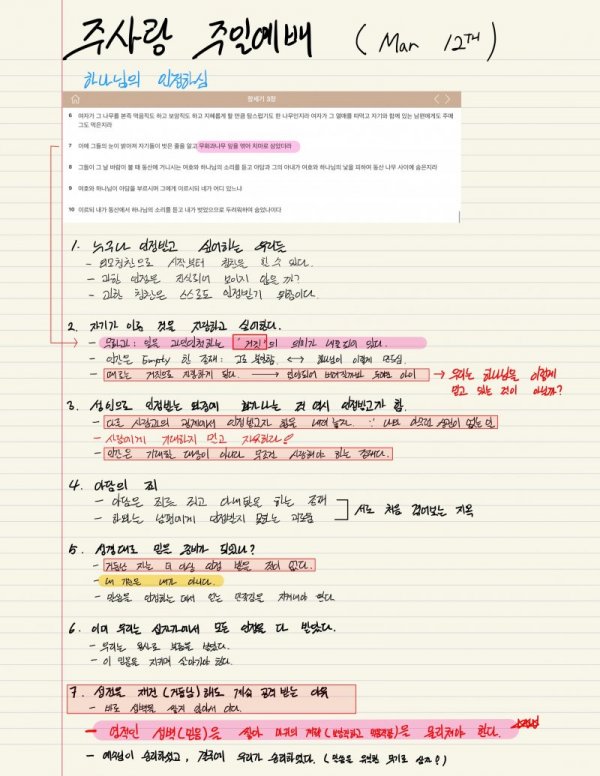 주사랑 주일예배 (Mar 12TH)
하나님의 인정하심
창세기 3장
6 여자가 그 나무를 본즉 먹음직도 하고 보암직도 하고 지혜롭게 할 만큼 탐스럽기도 한 나무인지라 여자가 그 열매를 따먹고 자기와 함께 있는 남편에게도 주매
그도 먹은지라
7 이에 그들의 눈이 밝아져 자기들이 벗은 줄을 알고 무화과나무 잎을 엮어 치마로 삼았더라
8 그들이 그 날 바람이 불 때 동산에 거니시는 여호와 하나님의 소리를 듣고 아담과 그의 아내가 여호와 하나님의 낯을 피하여 동산 나무 사이에 숨은지라
9 여호와 하나님이 아담을 부르시며 그에게 이르시되 네가 어디 있느냐
10 이르되 내가 동산에서 하나님의 소리를 듣고 내가 벗었으므로 두려워하여 숨었나이다
1. 누구나 인정받고 싶어하는 우리들
- 외모칭찬으로 시작부터 칭찬을 할 수 있다.
- 과한 인정은 가식되어 보이지 않을까?
- 과한 칭찬은 스스로도 인정받기 위함이다.
2. 자기가 이룬 것을 자랑하고 싶어한다.
- 무화과: 잎을 '거짓'의 의미가 내포되어 있다.
- 인간은 Empty 한 존재: 고로 불안함 ↔ 하나님이 이렇게 만드심.
- 때로는 거짓으로 치장하게 된다. → 아이
→ 우리는 하나님을 이렇게
믿고 있는 것이 아닌가?
3. 성인으로 인정받는 화가나는 것 역시 인정받고자 함.
- 다른 사람과의 관계에서 인정받고자 함을 내려놓자. 나는
- 사람에게 기대하지 말고 자유하라!
- 인간은 기대할 대상이 아니라 무조건 사랑해야 하는 존재다.
4. 아담의 죄
- 아담은 죄를 짓고 아내탓을 하는 존재
- 하와는 남편에게 인정받지 못했는 괴로움
서로 처음 겪어보는 지옥
5. 성경대로 믿을 준비가 되었나?
- 거듭난 자는 더 이상 인정 받을 것이 없다.
- 내 기준은 내가 아니다.
- 말씀을 인정하는 데서 얻는 만족감을 지켜내야 한다.
6. 이미 우리는 십자가에서 모든 인정을 다 받았다.
- 우리는 용서로 보응을 받았다.
- 이 믿음을 지키며 살아가야 한다.
7. 성전을 재건(거듭남)해도 계속 공격 받는 이유
- 바로 성벽을 쌓지 않아서 이다.
- 영적인 성벽(믿음)을 쌓아 마귀의 계략()을 물리쳐야 한다.
- 예수님이 승리하셨고, 결국에 우리가 승리하였다. (말씀을 유일한 무기로 삼자?)